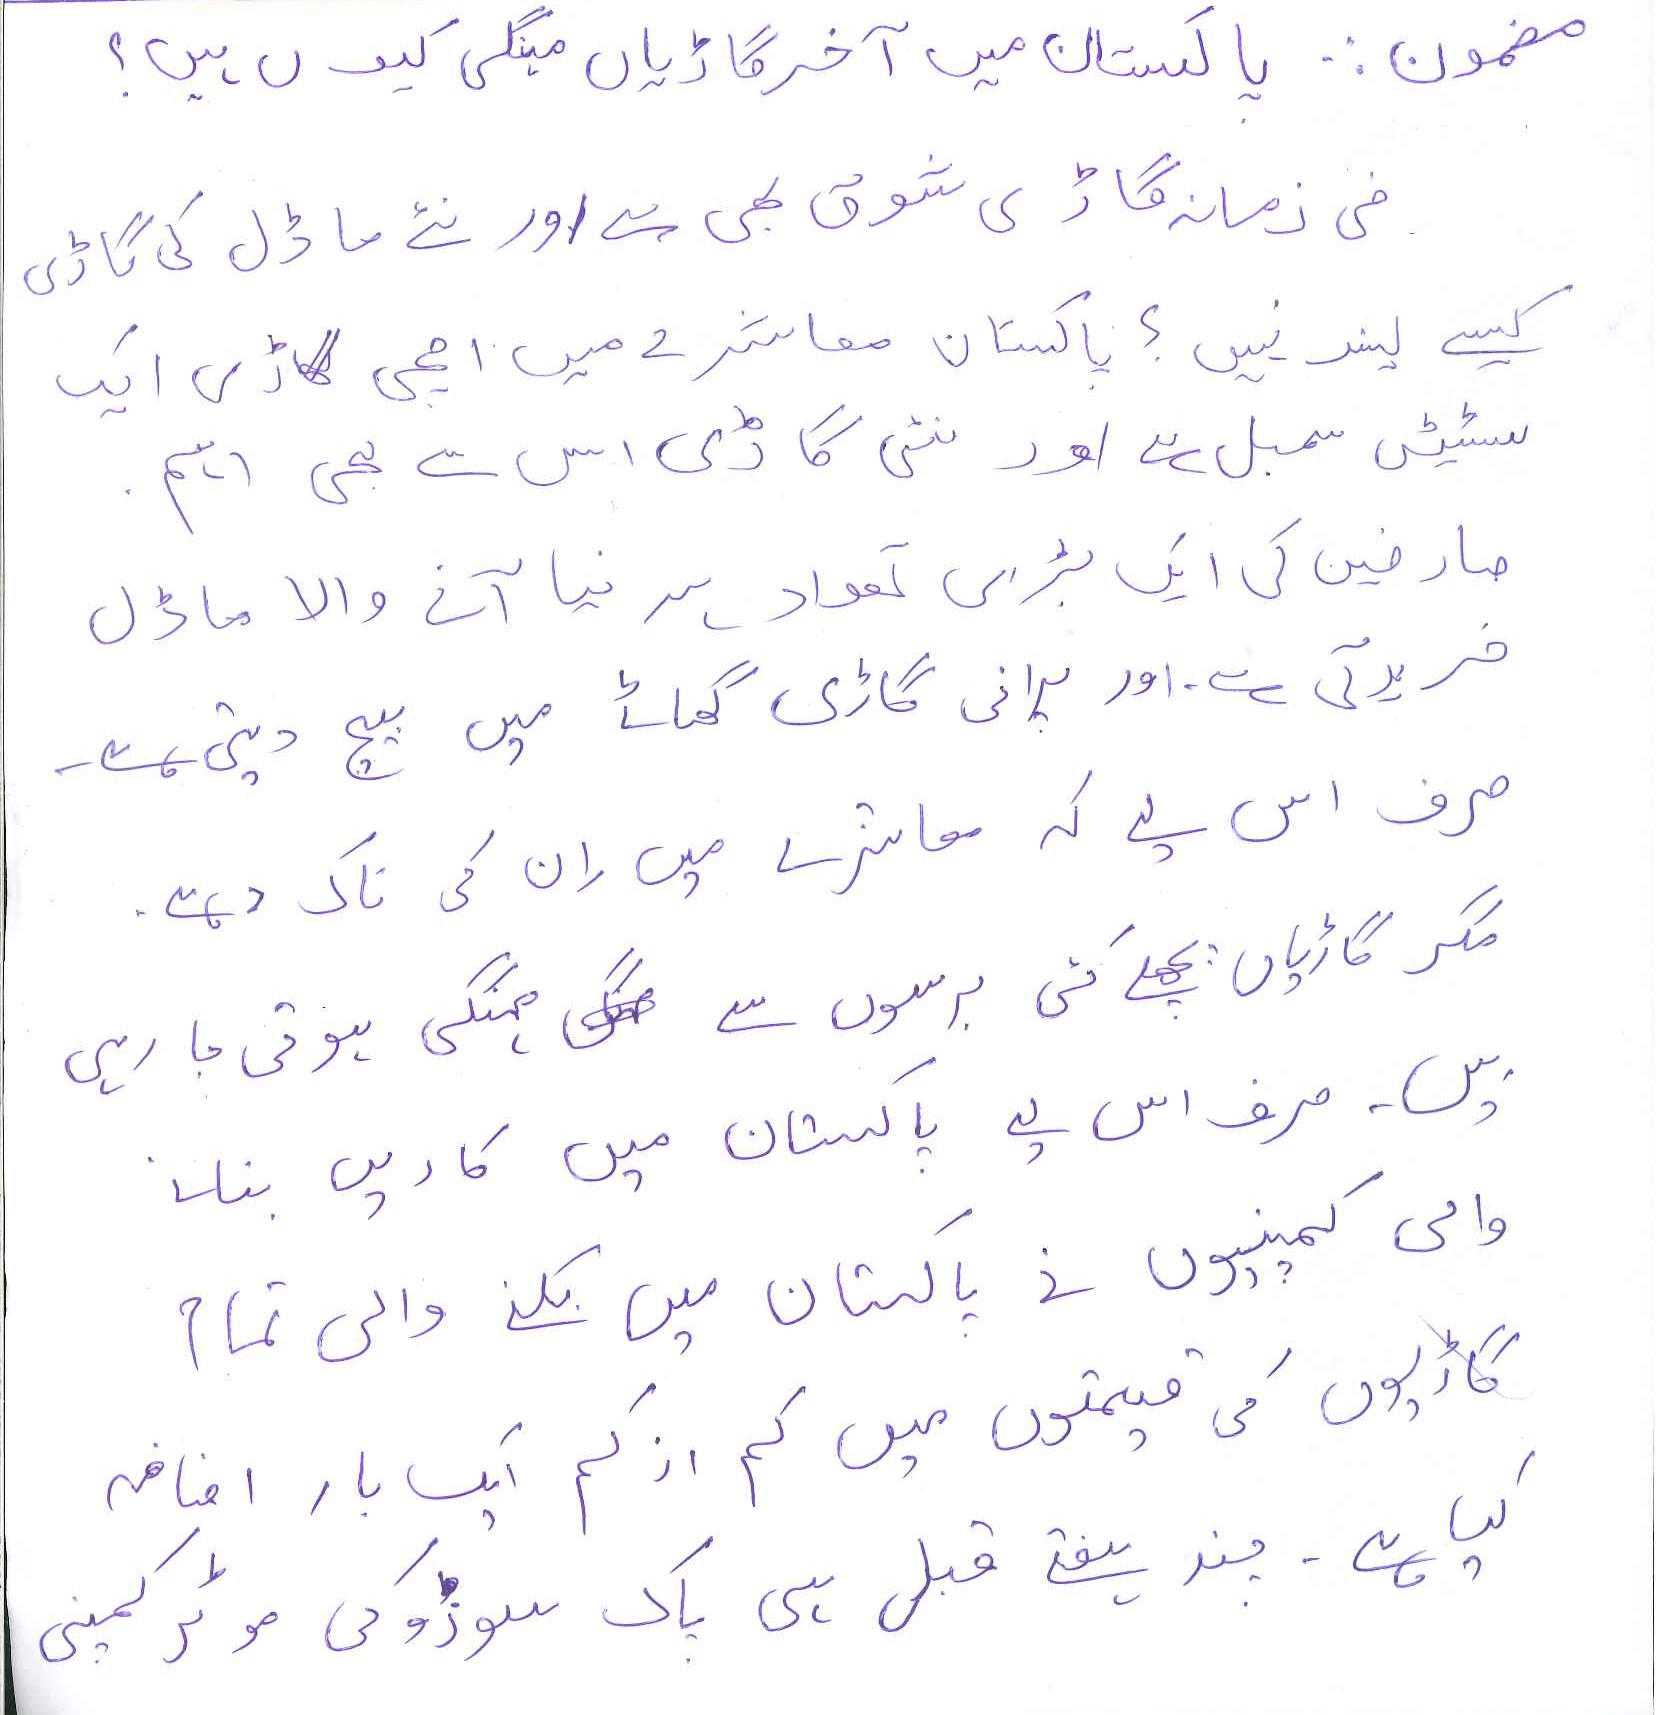 مضمون :. پاکستان میں آخر گاڑیاں مہنگی کیوں ہیں؟
فی زمانہ گاڑی شوق بھی ہے اور نئے ماڈل کی گاڑی
کیسے پسند نہیں؟ پاکستان معاشرے میں اچھی گاڑی ایک
سٹیٹس سمبل ہے اور نئی گاڑی اس سے بھی اہم.
صارفین کی ایک بڑی تعداد ہر نیا آنے والا ماڈل
خریدتی ہے۔ اور پرانی گاڑی گھاٹے میں بیچ دیتی ہے۔
صرف اس لیے کہ معاشرے میں ان کی ناک رہے۔
مگر گاڑیاں پچھلے کئی برسوں سے مہنگی ہوتی جا رہی
ہیں۔ صرف اس لیے پاکستان میں کاریں بنانے
والی کمپنیوں نے پاکستان میں بکنے والی تمام
گاڑیوں کی قیمتوں میں کم از کم ایک بار اضافہ
کیا ہے۔ چند ہفتے قبل ہی پاک سوزوکی موٹر کمپنی